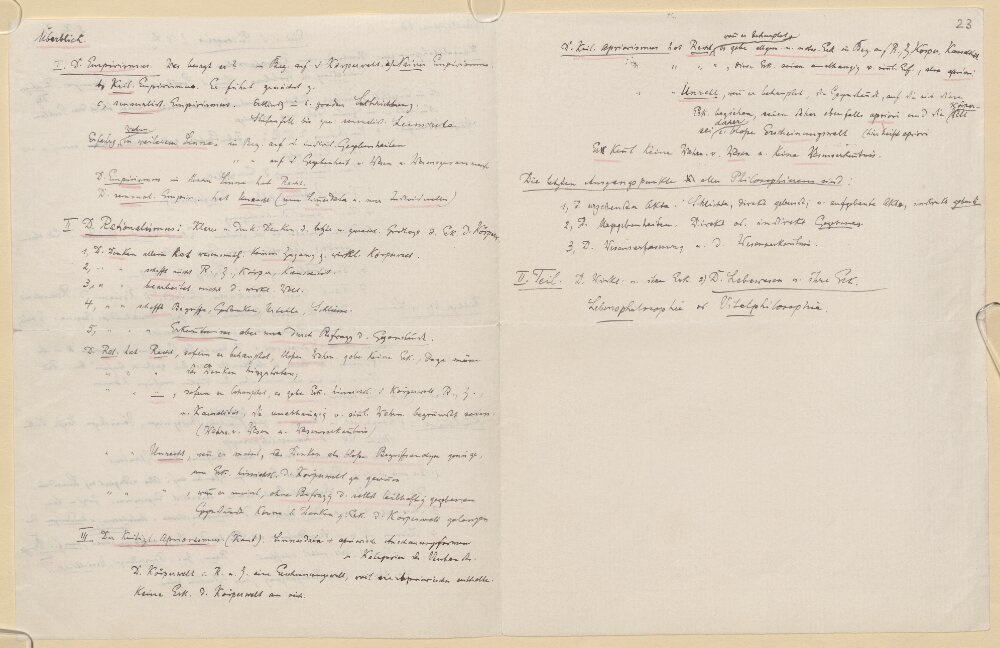 Überblick.
I. D. Empirismus. Was besagt er? in Bez. auf d. Körperwelt. a) Naiver Empirismus.
b) Krit. Empirismus. Er führt zunächst z.
c) sensualist. Empirismus.
Erfahrg im weiteren Sinne in Bez. auf d. individ. Gegebenheiten
" " auf d. Gegebenheit v. Wesen u. Wesenszusammenh.
D. Empirismus in diesem Sinne hat Recht.
D. sensual. Empir. hat Unrecht (nur Sinnesdata u. nur Individuelles)
II D. Rationalismus: Klares u. deutl. Denken d. letzte u. gewisse Grundlage d. Erk. d. Körperw.
1, D. Denken allein hat wesensmäß. keinen Zugang z. wirkl. Körperwelt.
2, " " schafft nicht R., Z., Körper, Kausalität.
3, " " bearbeitet nicht d. wirkl. Welt.
4, " " schafft Begriffe, Gedanken, Urteile, Schlüsse.
5, " " Erkenntnisse aber nur durch Befragg d. Gegenstände.
D. Rat. hat Recht, sofern er behauptet, bloßes Wahrn. gebe keine Erk., dazu müsse
das Denken hinzutreten;
" " " ", sofern er behauptet, es gebe Erk. hinsichtl. d. Körperwelt, R., Z.,
u. Kausalität, die unabhängig v. sinnl. Wahrn. begründet seien
(Wahrn. v. Wesen u. Wesenserkenntnis)
" " Unrecht, wenn er meint, das Denken als bloßes Begriffsanalysen genüge,
um Erk. hinsichtl. d. Körperwelt zu gewinnen
" " ", wenn er meint, ohne Befragg d. selbst leibhaftig gegebenen
Gegenstände könne d. Denken z. Erk. d. Körperwelt gelangen
III. Der kritizist. Apriorismus (Kant). Sinnesdata + apriorische Anschauungsformen
u. Kategorien des Verstandes.
D. Körperwelt i. R. u. Z. eine Erscheinungswelt, weil sie Apriorisches enthalte.
Keine Erk. d. Körperwelt an sich.
23
wenn er behauptet
D. krit. Apriorismus hat Recht, es gebe allgem. u. notw. Erk. in Bez. auf R., Z., Körper, Kausalität
" " ", diese Erk. seien unabhängig v. sinnl. Erf., also apriori.
" " Unrecht, wenn er behauptet, die Gegenstände, auf die sich diese
Erk. beziehen, seien daher ebenfalls apriori und die Körperwelt
sei daher bloße Erscheinungswelt
Er kennt keine Wahrn. v. Wesen u. keine Wesenserkenntnis.
Die letzten Ausgangspunkte alles Philosophierens sind:
1, D. erfassenden Akte. Schlichte, direkt gebende u. aufgebaute Akte, indirekt gebende
2, D. Sachgegebenheiten. Direkt od. indirekt Gegebenes.
3, D. Wesenserfassung u. d. Wesenserkenntnis.
II. Teil. D. Wirkl. u. ihre Erk. a) D. Lebewesen u. ihre Erk.
Lebensphilosophie od. Vitalphilosophie.